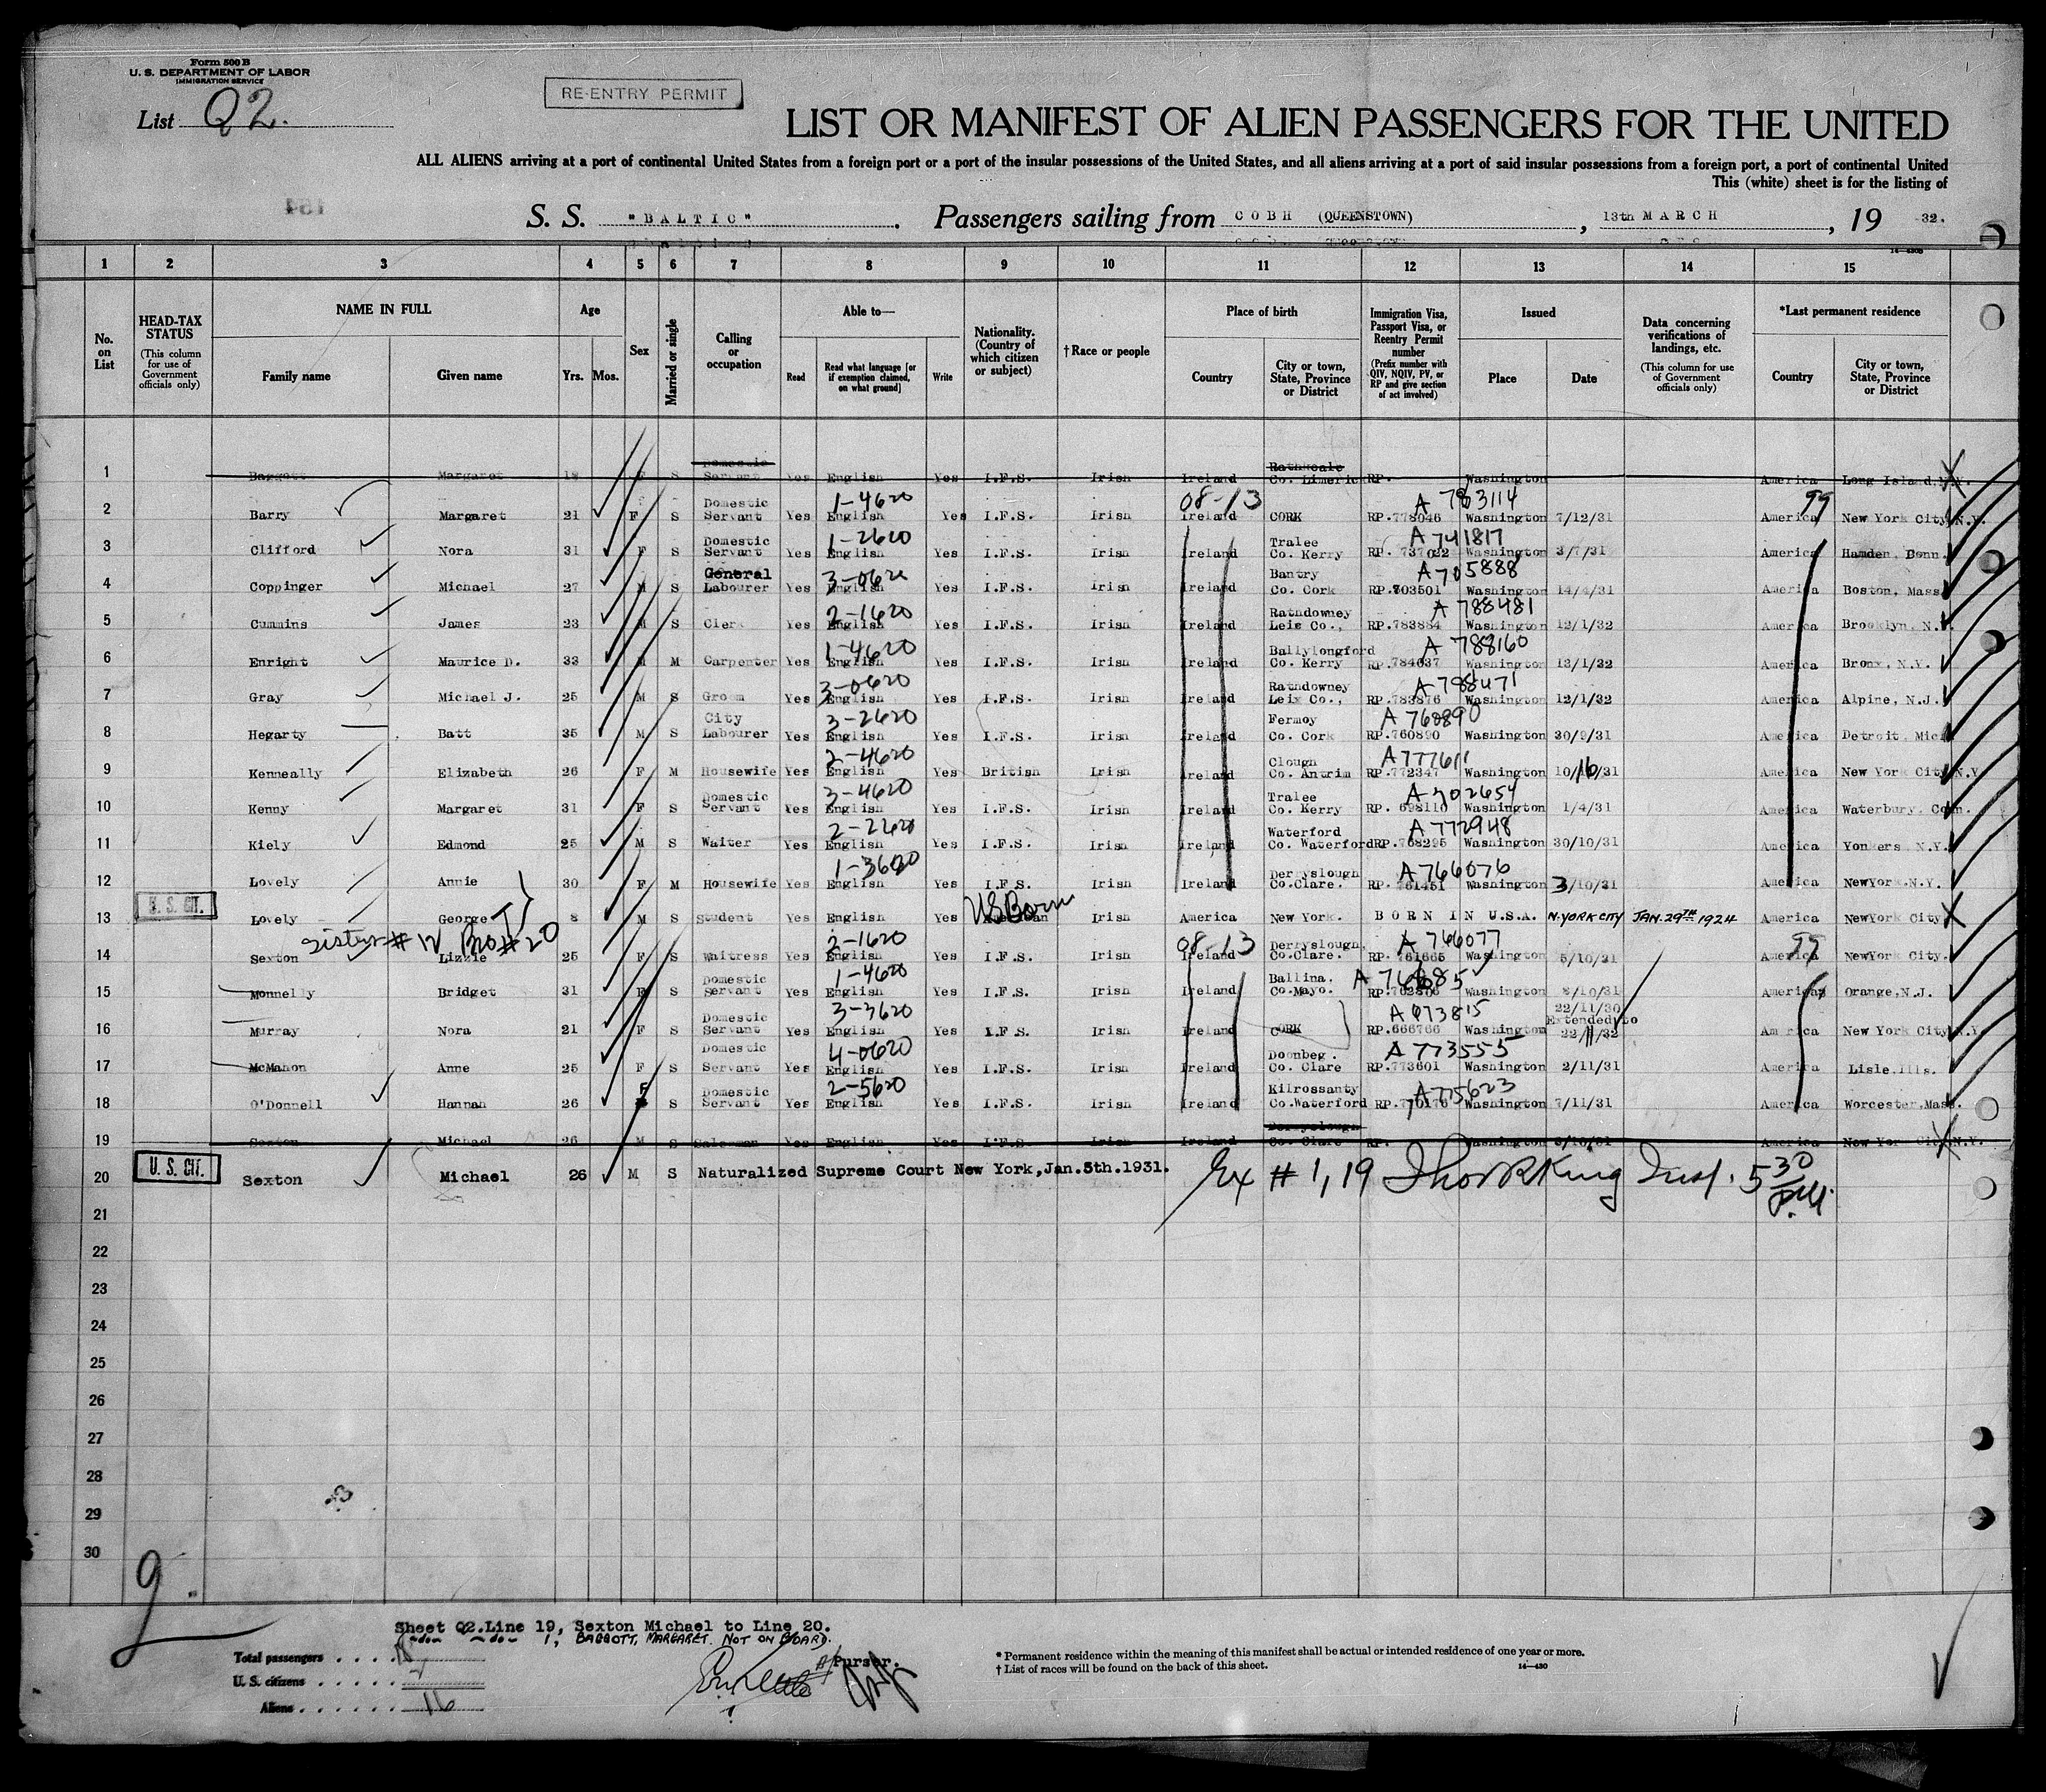 Form 500 B
U. S. DEPARTMENT OF LABOR
IMMIGRATION SERVICE
List Q2.
RE-ENTRY PERMIT
LIST OR MANIFEST OF ALIEN PASSENGERS FOR THE UNITED
ALL ALIENS arriving at a port of continental United States from a foreign port or a port of the insular possessions of the United States, and all aliens arriving at a port of said insular possessions from a foreign port, a port of continental United
This (white) sheet is for the listing of
S. S. "BALTIC". Passengers sailing from COBH (QUEENSTOWN), 13th MARCH, 19 32.
1 2 3 4 5 6 7 8 9 10 11 12 13 14 15
No. on List
HEAD-TAX STATUS (This column for use of Government officials only)
NAME IN FULL Family name Given name
Age Yrs. Mos.
Sex
Married or single
Calling or occupation
Able to— Read Read what language [or if exemption claimed, on what ground] Write
Nationality. (Country of which citizen or subject)
†Race or people
Place of birth Country City or town, State, Province or District
Immigration Visa, Passport Visa, or Reentry Permit number (Prefix number with QIV, NQIV, PV, or RP and give section of act involved)
Issued Place Date
Data concerning verifications of landings, etc. (This column for use of Government officials only)
*Last permanent residence Country City or town, State, Province or District
1 Baggott Margaret 18 F S Domestic Servant Yes English Yes I.F.S. Irish Ireland Rathkeale Co. Limerick RP. Washington America Long Island, N.Y.
1-4620 08-13 A 783114 99
2 Barry Margaret 21 F S Domestic Servant Yes English Yes I.F.S. Irish Ireland CORK RP.778046 Washington 7/12/31 America New York City, N.Y.
1-2620 A 741817
3 Clifford Nora 31 F S Domestic Servant Yes English Yes I.F.S. Irish Ireland Tralee Co. Kerry RP. 737022 Washington 3/7/31 America Hamden, Conn.
3-0620 A 705888
4 Coppinger Michael 27 M S General Labourer Yes English Yes I.F.S. Irish Ireland Bantry Co. Cork RP.703501 Washington 14/4/31 America Boston, Mass.
2-1620 A 788481
5 Cummins James 23 M S Clerk Yes English Yes I.F.S. Irish Ireland Rathdowney Leix Co., RP.783884 Washington 12/1/32 America Brooklyn, N.Y.
1-4620 A 788160
6 Enright Maurice D. 33 M M Carpenter Yes English Yes I.F.S. Irish Ireland Ballylongford Co. Kerry RP.784637 Washington 13/1/32 America Bronx, N.Y.
3-0620 A 788471
7 Gray Michael J. 25 M S Groom Yes English Yes I.F.S. Irish Ireland Rathdowney Leix Co., RP.783876 Washington 12/1/32 America Alpine, N.J.
3-2620 A 760890
8 Hegarty Batt 35 M S City Labourer Yes English Yes I.F.S. Irish Ireland Fermoy Co. Cork RP.760890 Washington 30/9/31 America Detroit, Mich.
2-4620 A777611
9 Kenneally Elizabeth 26 F M Housewife Yes English Yes British Irish Ireland Clough Co. Antrim RP.772347 Washington 10/10/31 America New York City, N.Y.
3-4620 A 702654
10 Kenny Margaret 31 F S Domestic Servant Yes English Yes I.F.S. Irish Ireland Tralee Co. Kerry RP. 698110 Washington 1/4/31 America Waterbury, Conn.
2-2620 A 772948
11 Kiely Edmond 25 M S Waiter Yes English Yes I.F.S. Irish Ireland Waterford Co. Waterford RP.768295 Washington 30/10/31 America Yonkers N.Y.
1-3620 A 766076
12 Lovely Annie 30 F M Housewife Yes English Yes I.F.S. Irish Ireland Derryslough Co.Clare. RP. 761451 Washington 3/10/31 America NewYork.N.Y.
13 U. S. CIT. Lovely George 8 M S Student Yes English Yes US Born American Irish America New York. BORN IN U.S.A. N.YORK CITY JAN. 29TH 1924 America NewYork City
Sister # 12 Bro # 20 2-1620 08-13 A 766077 99
14 Sexton Lizzie 25 F S Waitress Yes English Yes I.F.S. Irish Ireland Derryslough, Co.Clare. RP. 761665 Washington 5/10/31 America New York City.
1-4620
15 Monnelly Bridget 31 F S Domestic Servant Yes English Yes I.F.S. Irish Ireland Ballina. Co.Mayo. Washington 8/10/31 America Orange,N.J.
3-3620 A 673815
16 Murray Nora 21 F S Domestic Servant Yes English Yes I.F.S. Irish Ireland CORK RP.666766 Washington 22/11/30 Extended to 22/11/32 America New York City N.Y.
4-0620 A 773555
17 McMahon Anne 25 F S Domestic Servant Yes English Yes I.F.S. Irish Ireland Doonbeg. Co. Clare RP.773601 Washington 2/11/31 America Lisle.Ills.
2-5620 A775623
18 O'Donnell Hannah 26 F S Domestic Servant Yes English Yes I.F.S. Irish Ireland Kilrossanty Co.Waterford RP.770170 Washington 7/11/31 America Worcester,Mass.
19 Sexton Michael 26 M S Salesman Yes English Yes I.F.S. Irish Ireland Derryslough Co. Clare RP. Washington America New York City, N.Y.
20 U. S. CIT. Sexton Michael 26 M S Naturalized Supreme Court New York,Jan.5th.1931. Ex # 1, 19 Thos R King Insp. 5 30 P.M.
21
22
23
24
25
26
27
28
29
30
9
Sheet Q2.Line 19, Sexton Michael to Line 20.
-do- -do- 1, BAGGOTT, MARGARET. NOT ON BOARD.
Total passengers 18
U. S. citizens 2
Aliens 16
Purser.
* Permanent residence within the meaning of this manifest shall be actual or intended residence of one year or more.
† List of races will be found on the back of this sheet.
14—430